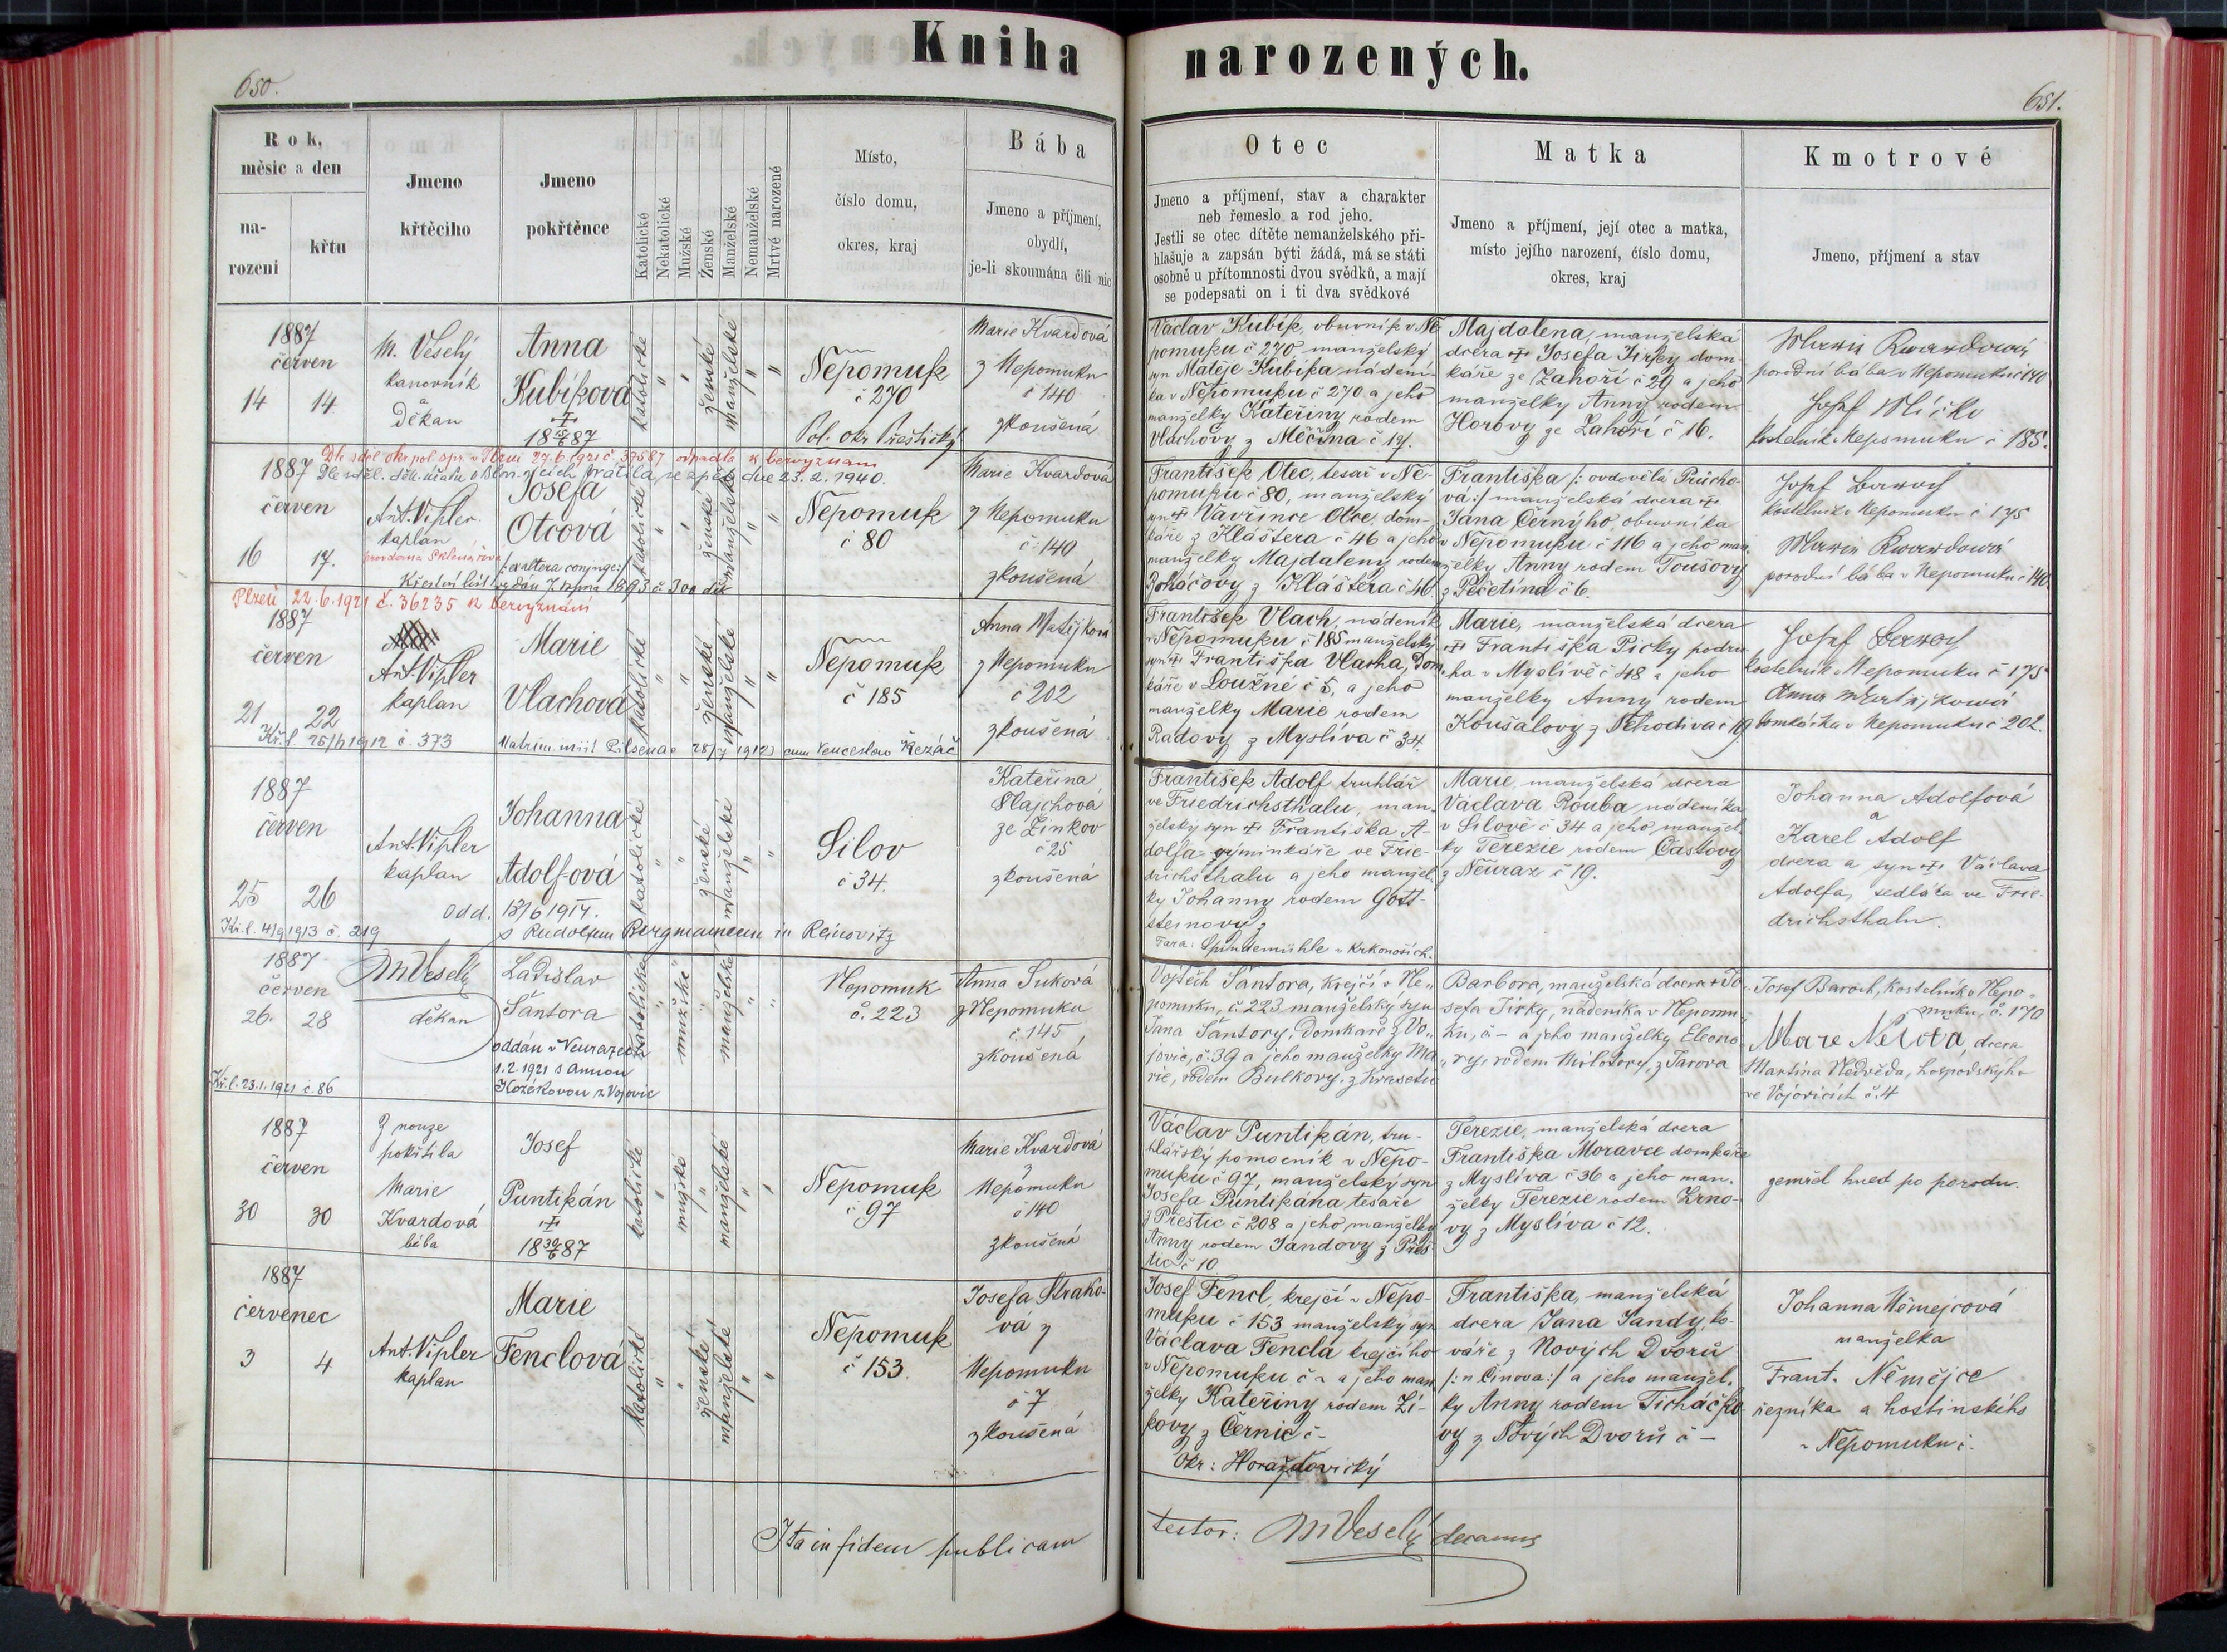 Kniha narozených.
650.
651.
Rok,
měsíc a den
na-
rození
křtu
Jmeno
křtěcího
Jmeno
pokřtěnce
Katolické
Nekatolické
Mužské
Ženské
Manželské
Nemanželské
Mrtvě narozené
Místo,
číslo domu,
okres, kraj
Bába
Jmeno a příjmení,
obydlí,
je-li skoumána čili nic
Otec
Jmeno a příjmení, stav a charakter
neb řemeslo a rod jeho.
Jestli se otec dítěte nemanželského při-
hlašuje a zapsán býti žádá, má se státi
osobně u přítomnosti dvou svědků, a mají
se podepsati on i ti dva svědkové
Matka
Jmeno a příjmení, její otec a matka,
místo jejího narození, číslo domu,
okres, kraj
Kmotrové
Jmeno, příjmení a stav
1887
červen
14 14
M. Veselý
kanovník
a
Děkan
Anna
Kubíková
✝
18 15/6 87
katolické
"
"
ženské
manželské
"
"
Nepomuk
č 270
Pol. okr Přeštický
Marie Kvardová
z Nepomuku
č 140
zkoušená
Václav Kubík, obuvník v Ne-
pomuku č 270 manželský
syn Matěje Kubíka nádení-
ka v Nepomuku č 270 a jeho
manželky Kateřiny rodem
Vlachovy z Měčína č 17.
Majdalena, manželská
dcera ✝ Josefa Jirky dom-
káře ze Zahoří č 29 a jeho
manželky Anny rodem
Horovy ze Zahoří č 16.
Marie Kvardová
porodní bába v Nepomuku č 140
Josef
kostelník Nepomuku č 185.
Dle sděl. okr. pol. spr. v Plzni 27.6.1921 č. 37587 odpadla k bezvyznání
Dle sděl. děk. úřadu v Plzni z církve vrátila se zpět dne 23.2.1940.
1887
červen
16 17.
Ant. Vipler
kaplan
Josefa
Otcová
katolické
"
"
ženské
manželské
"
"
Nepomuk
č 80
Marie Kvardová
z Nepomuku
č 140
zkoušená
František Otec, tesař v Ne-
pomuku č 80, manželský
syn ✝ Vavřince Otce dom-
káře z Kláštera č 46 a jeho
manželky Majdaleny rodem
z Kláštera č 46
Františka /: ovdovělá Průcho-
vá:/ manželská dcera ✝
Jana Černýho, obuvníka
v Nepomuku č 116 a jeho man-
želky Anny rodem Toušovy
z Pečetína č 6.
Josef Baroch
kostelník v Nepomuku č 175
Marie Kvardová
porodní bába v Nepomuku č 140.
/: ex altera conjuge:/
Křestní list vydán 7. srpna 1893 č 300
Plzeň 22.6.1921 č. 36235 k bezvyznání
1887
červen
21 22
Ant. Vipler
kaplan
Marie
Vlachová
katolické
"
"
ženské
manželské
"
"
Nepomuk
č 185
Anna Matějková
z Nepomuku
č 202
zkoušená
František Vlach, nádeník
v Nepomuku č 185 manželský
syn ✝ Františka Vlacha, Dom-
káře v Loužné č 5, a jeho
manželky Marie rodem
Radovy z Myslíva č 34.
Marie, manželská dcera
✝ Františka Picky podru-
ha v Myslívě č 48 a jeho
manželky Anny rodem
Koušalovy z Nehodiva č 19
Josef Baroch
kostelník Nepomuku č 175
Anna Matějková
domkářka v Nepomuku č 202.
Kř. l 25/4 1912 č. 373 Matrim. iniit Pilsenae 28/7 1912 cum Venceslao Řezáč
1887
červen
25 26
Ant. Vipler
kaplan
Johanna
Adolfová
katolické
"
"
ženské
manželské
"
"
Silov
č 34.
Kateřina
Hajchová
ze Žinkov
č 25
zkoušená
František Adolf truhlář
ve Friedrichsthalu, man-
želský syn ✝ Františka A-
dolfa výminkáře ve Frie-
drichsthalu a jeho manžel-
ky Johanny rodem Gott-
steinovy z
Fara: Spindemühle v Krkonoších.
Marie, manželská dcera
Václava Rouba nádeníka
v Silově č 34 a jeho manžel-
ky Terezie rodem Častovy
z Neuraz č 19.
Johanna Adolfová
a
Karel Adolf
dcera a syn ✝ Václava
Adolfa, sedláka ve Frie-
drichsthalu.
Odd. 13/6 1914.
s Rudolfem Bergmannem in Reinovitz
Kř. l. 4/9 1913 č. 219
1887
červen
26. 28
M Veselý
děkan
Ladislav
Šantora
oddán v Neurazech
1.2 1921 s Annou
Kozákovou z Vojovic
Kř. l. 23.1.1921 č. 86
katolické
"
mužské
"
manželské
"
"
Nepomuk
č. 223
Anna Suková
z Nepomuku
č. 145
zkoušená
Vojtěch Šantora, krejčí v Ne-
pomuku, č. 223 manželský syn
Jana Šantory, Domkáře z Vo-
jovic, č. 39 a jeho manželky Ma-
rie, rodem Bulkovy, z
Barbora, manželská dcera ✝ Jo-
sefa Jirky, nádeníka v Nepomu-
ku, č - a jeho manželky Eleono-
ry, rodem Milotovy, z Tarova
Josef Baroch, kostelník v Nepo-
muku, č. 170
dcera
Martina Nedvěda, hospodskýho
ve Vojovicích č. 4
1887
červen
30 30
Z nouze
pokřtila
Marie
Kvardová
bába
Josef
Puntikán
✝
18 30/6 87
katolické
"
mužské
"
manželské
"
"
Nepomuk
č 97
Marie Kvardová
z
Nepomuku
č 140
zkoušená
Václav Puntikán, tru-
hlářský pomocník v Nepo-
muku č 97, manželský syn
Josefa Puntikána tesaře
z Přeštic č 208 a jeho manželky
Anny rodem Jandovy z Přeš-
tic č 10
Terezie, manželská dcera
Františka Moravce domkáře
z Myslíva č 36 a jeho man-
želky Terezie rodem Zrno-
vy z Myslíva č 12.
zemřel hned po porodu.
1887
červenec
3 4
Ant. Vipler
kaplan
Marie
Fenclová
katolické
"
"
ženské
manželské
"
"
Nepomuk
č 153.
Josefa Strako-
vá z
Nepomuku
č 7
zkoušená
Josef Fencl, krejčí v Nepo-
muku č 153 manželský syn
Václava Fencla krejčího
v Nepomuku č - a jeho man-
želky Kateřiny rodem Zí-
kovy z Černic č -
Okr: Horažďovický
Františka, manželská
dcera Jana Jandy, ko-
váře z Nových Dvorů
/: n Činova:/ a jeho manžel-
ky Anny rodem Ticháčko-
vy z Nových Dvorů č -
Johanna Němejcová
manželka
Frant. Němejce
řezníka a hostinského
v Nepomuku č.
Ita in fidem publicam
testor: M Veselý decanus